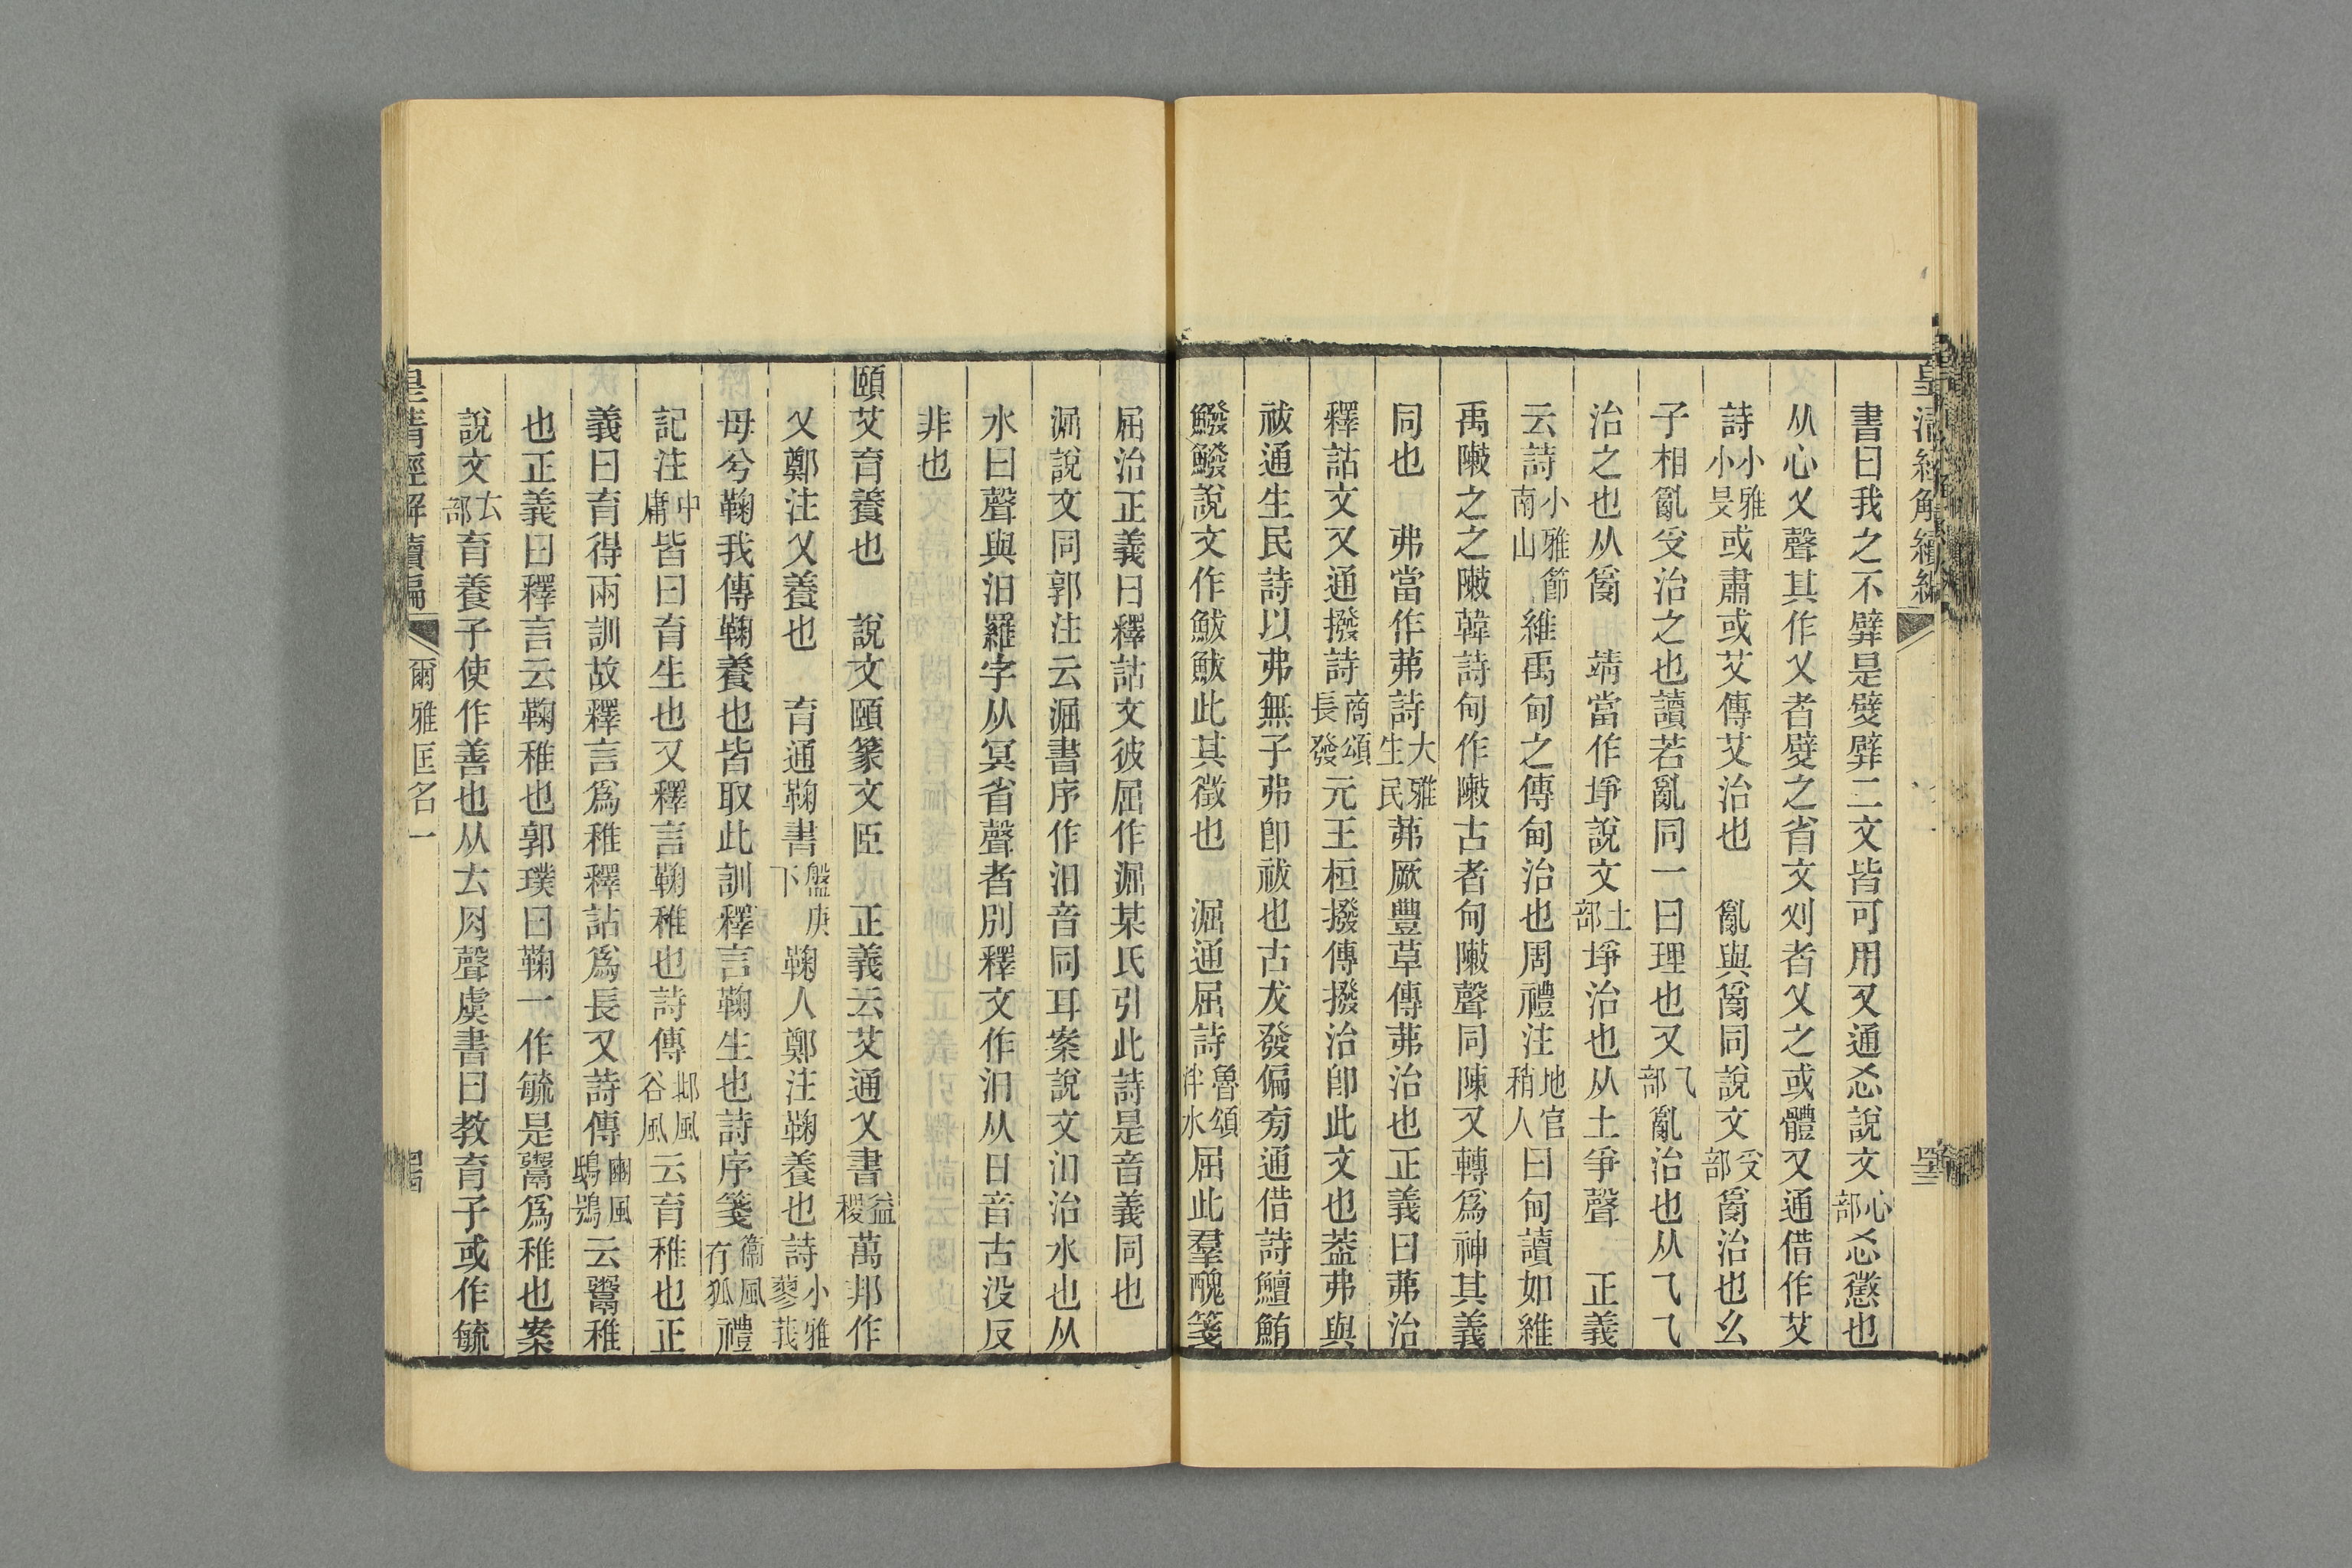 書曰我之不擘是嬖擘二文皆可用又通㣻說文心部㣻懲也
从心乂聲其作乂者嬖之省文刈者乂之或體又通借作艾
詩小雅小旻或肅或艾傳艾治也 亂與𤔔同說文𠬪部𤔔治也幺
子相亂𠬪治之也讀若亂同一曰理也又乁部亂治也从乁乁
治之也从𤔔 靖當作埩說文土部埩治也从土爭聲 正義
云詩小雅節南山維禹甸之傳甸治也周禮注地官稍人曰甸讀如維
禹敶之之敶韓詩甸作敶古者甸敶聲同陳又轉爲神其義
同也 弗當作茀詩大雅生民茀厥豐草傳茀治也正義曰茀治
釋詁文又通撥詩商頌長發元王桓撥傳撥治卽此文也葢弗與
祓通生民詩以弗無子弗卽祓也古犮發偏旁通借詩鱣鮪
鱍鱍說文作鮁鮁此其徵也 淈通屈詩魯頌泮水屈此羣醜箋
屈治正義曰釋詁文彼屈作淈某氏引此詩是音義同也
淈說文同郭注云淈書序作汩音同耳案說文汨治水也从
水曰聲與汨羅字从冥省聲者別釋文作汩从日音古没反
非也
頤艾育養也 說文頤篆文𦣞 正義云艾通乂書益稷萬邦作
乂鄭注乂養也 育通鞠書盤庚下鞠人鄭注鞠養也詩小雅蓼莪
母兮鞠我傳鞠養也皆取此訓釋言鞠生也詩序箋衞風有狐禮
記注中庸皆曰育生也又釋言鞠稚也詩傳邶風谷風云育稚也正
義曰育得兩訓故釋言爲稚釋詁爲長又詩傳豳風鴟鴞云鬻稚
也正義曰釋言云鞠稚也郭璞曰鞠一作毓是鬻爲稚也案
說文𠫓部育養子使作善也从𠫓肉聲虞書曰教育子或作毓
皇清經解續編 爾雅匡名一